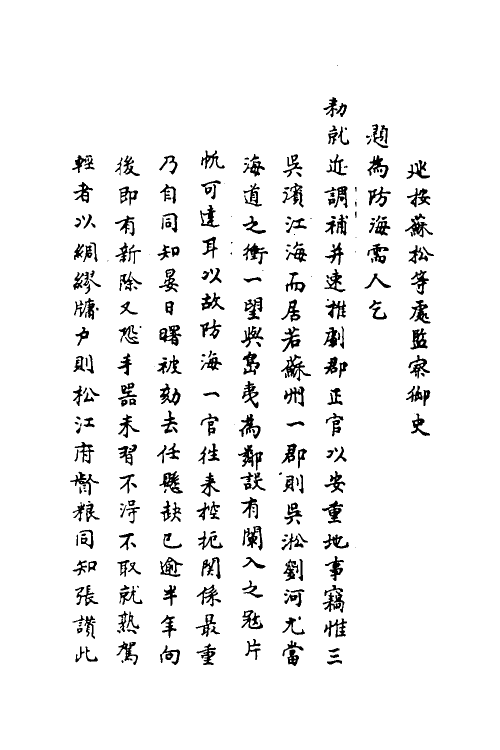 巡按蘇松等處監察御史
題為防海需人乞
勑就近調補并速推劇郡正官以安重地事竊惟三
吳濱江海而居若蘇州一郡則吳淞劉河尤當
海道之衝一望與島夷為鄰設有闌入之冦片
帆可達耳以故防海一官往来控扼関係最重
乃自同知晏日曙被劾去任懸缺已逾半年向
後即有新除又恐手器未習不得不取就熟駕
輕者以綢繆牖户則松江府督粮同知張讃此